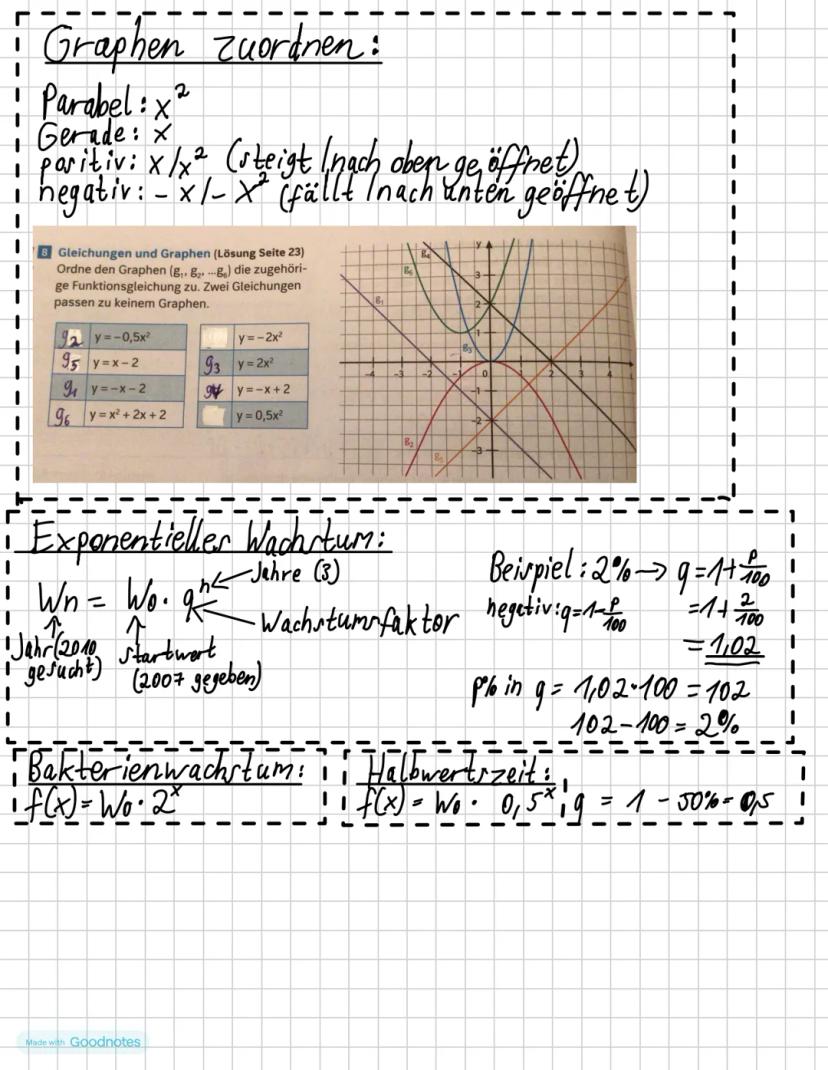 Graphen zuordnen:
Parabel: x²
Gerade: x
positiv: x/x² (steigt/nach oben geöffnet)
negativ: -x/-x² (fällt/nach unten geöffnet)
8 Gleichungen und Graphen (Lösung Seite 23)
Ordne den Graphen (g₁, g₂, ...g₆) die zugehöri-
ge Funktionsgleichung zu. Zwei Gleichungen
passen zu keinem Graphen.
g2 y = -0,5x² y = -2x²
g5 y = x - 2 g3 y = 2x²
g1 y = -x - 2 g4 y = -x + 2
g6 y = x² + 2x + 2 y = 0,5x²
y
g₄
g₆
3
g₁
2
1
g₃
-4 -3 -2 -1 0 2 3 4
-1
-2
g₂
g₅
-3
Exponentieller Wachstum:
Wn = W0 · qⁿ
Jahre (3)
Wachstumsfaktor
Jahr (2010
gesucht)
Startwert
(2007 gegeben)
Beispiel: 2% → q = 1 + p/100
negativ: q = 1 - p/100
= 1 + 2/100
= 1,02
p% in q = 1,02 · 100 = 102
102 - 100 = 2%
Bakterienwachstum:
f(x) = W0 · 2ˣ
Halbwertszeit:
f(x) = W0 · 0,5ˣ q = 1 - 50% = 0,5
Made with Goodnotes